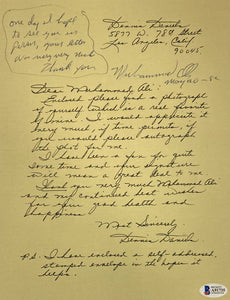 one day I hope
to see you in
person, your letter
was very very much
Thank you
Dennis
5877 W. 78th Street
Los Angeles, Calif.
90045
Muhammad Ali
Dear Muhammad Ali:
Enclosed please find a photograph
of yourself which is a real favorite
of mine. I would appreciate it
very much, if time permits, if
you would please autograph
the photo for me.
I have been a fan for quite
some time and your signature
will mean a great deal to me
Thank you very much Muhammad Ali
and my continued best wishes
for your good health and
happiness.
Most Sincerely,
Dennis
P.S. I have enclosed a self-addressed,
stamped envelope in the hopes it
helps.
BECKETT